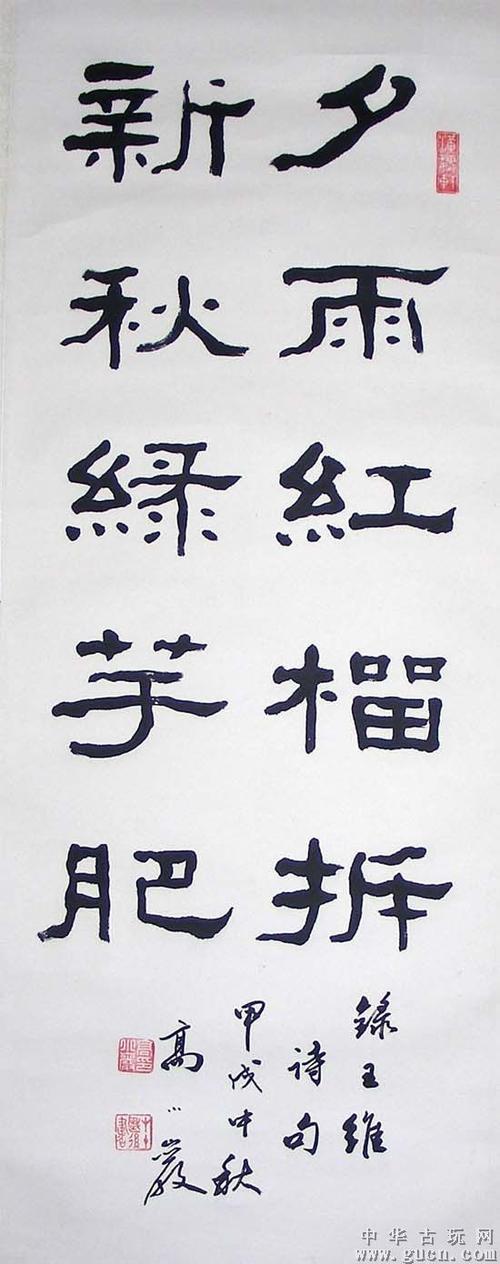 夕雨紅榴拆
新秋綠芋肥
錄王維
诗句
甲戌中秋
高小巖
中华古玩网
www.gucn.com